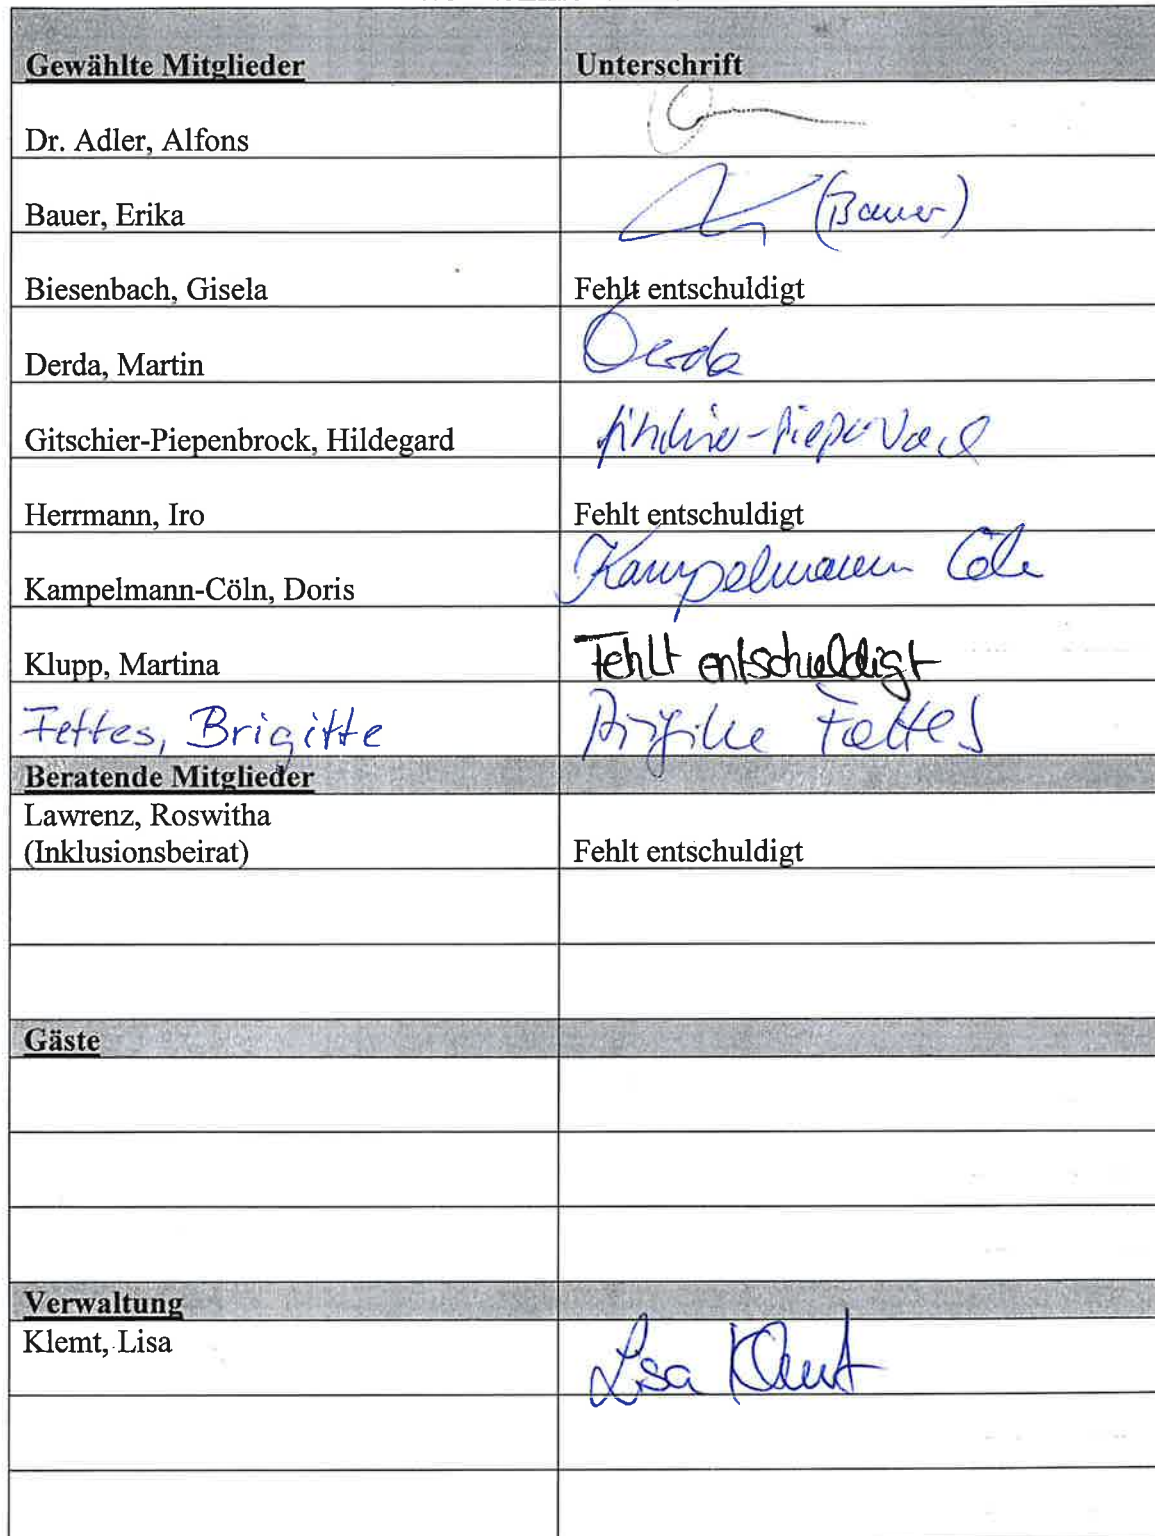 Gewählte Mitglieder Unterschrift
Dr. Adler, Alfons
Bauer, Erika (Bauer)
Biesenbach, Gisela Fehlt entschuldigt
Derda, Martin Derda
Gitschier-Piepenbrock, Hildegard
Herrmann, Iro Fehlt entschuldigt
Kampelmann-Cöln, Doris Kampelmann Cöln
Klupp, Martina Fehlt entschuldigt
Fettes, Brigitte Brigitte Fettes
Beratende Mitglieder
Lawrenz, Roswitha
(Inklusionsbeirat) Fehlt entschuldigt
Gäste
Verwaltung
Klemt, Lisa Lisa Klemt